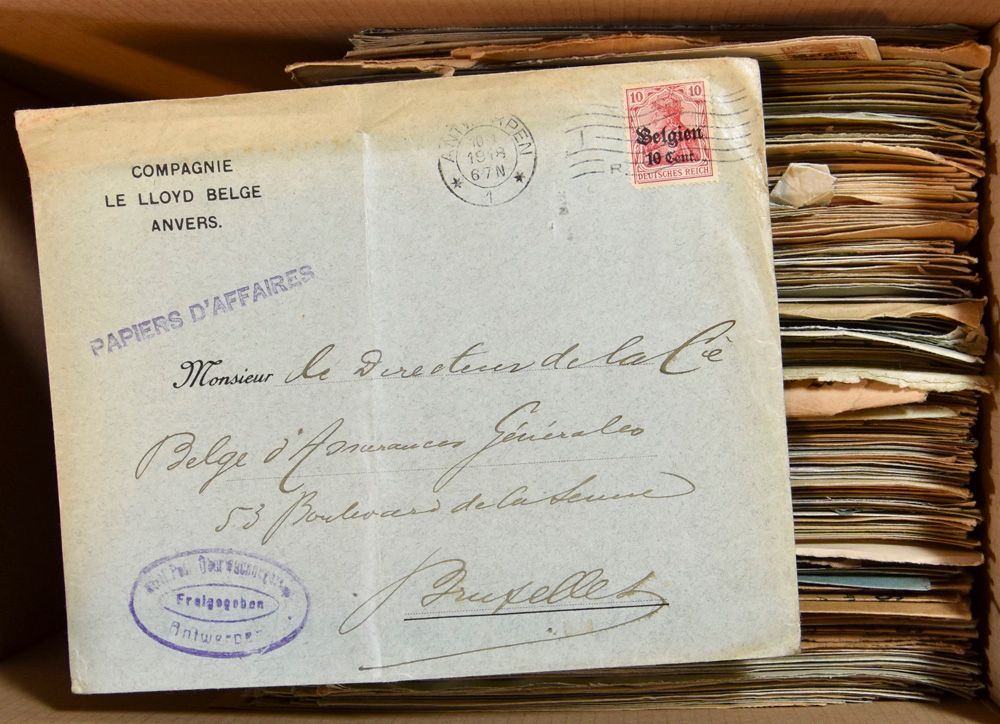 COMPAGNIE
LE LLOYD BELGE
ANVERS.
PAPIERS D'AFFAIRES
ANTWERPEN
1918
6-7N
1
10 10
Belgien
10 Cent.
DEUTSCHES REICH
R
Monsieur le Directeur de la Cie
Belge d'Assurances Générales
53 Boulevard de la Senne
Bruxelles
Freigegeben
Antwerpen